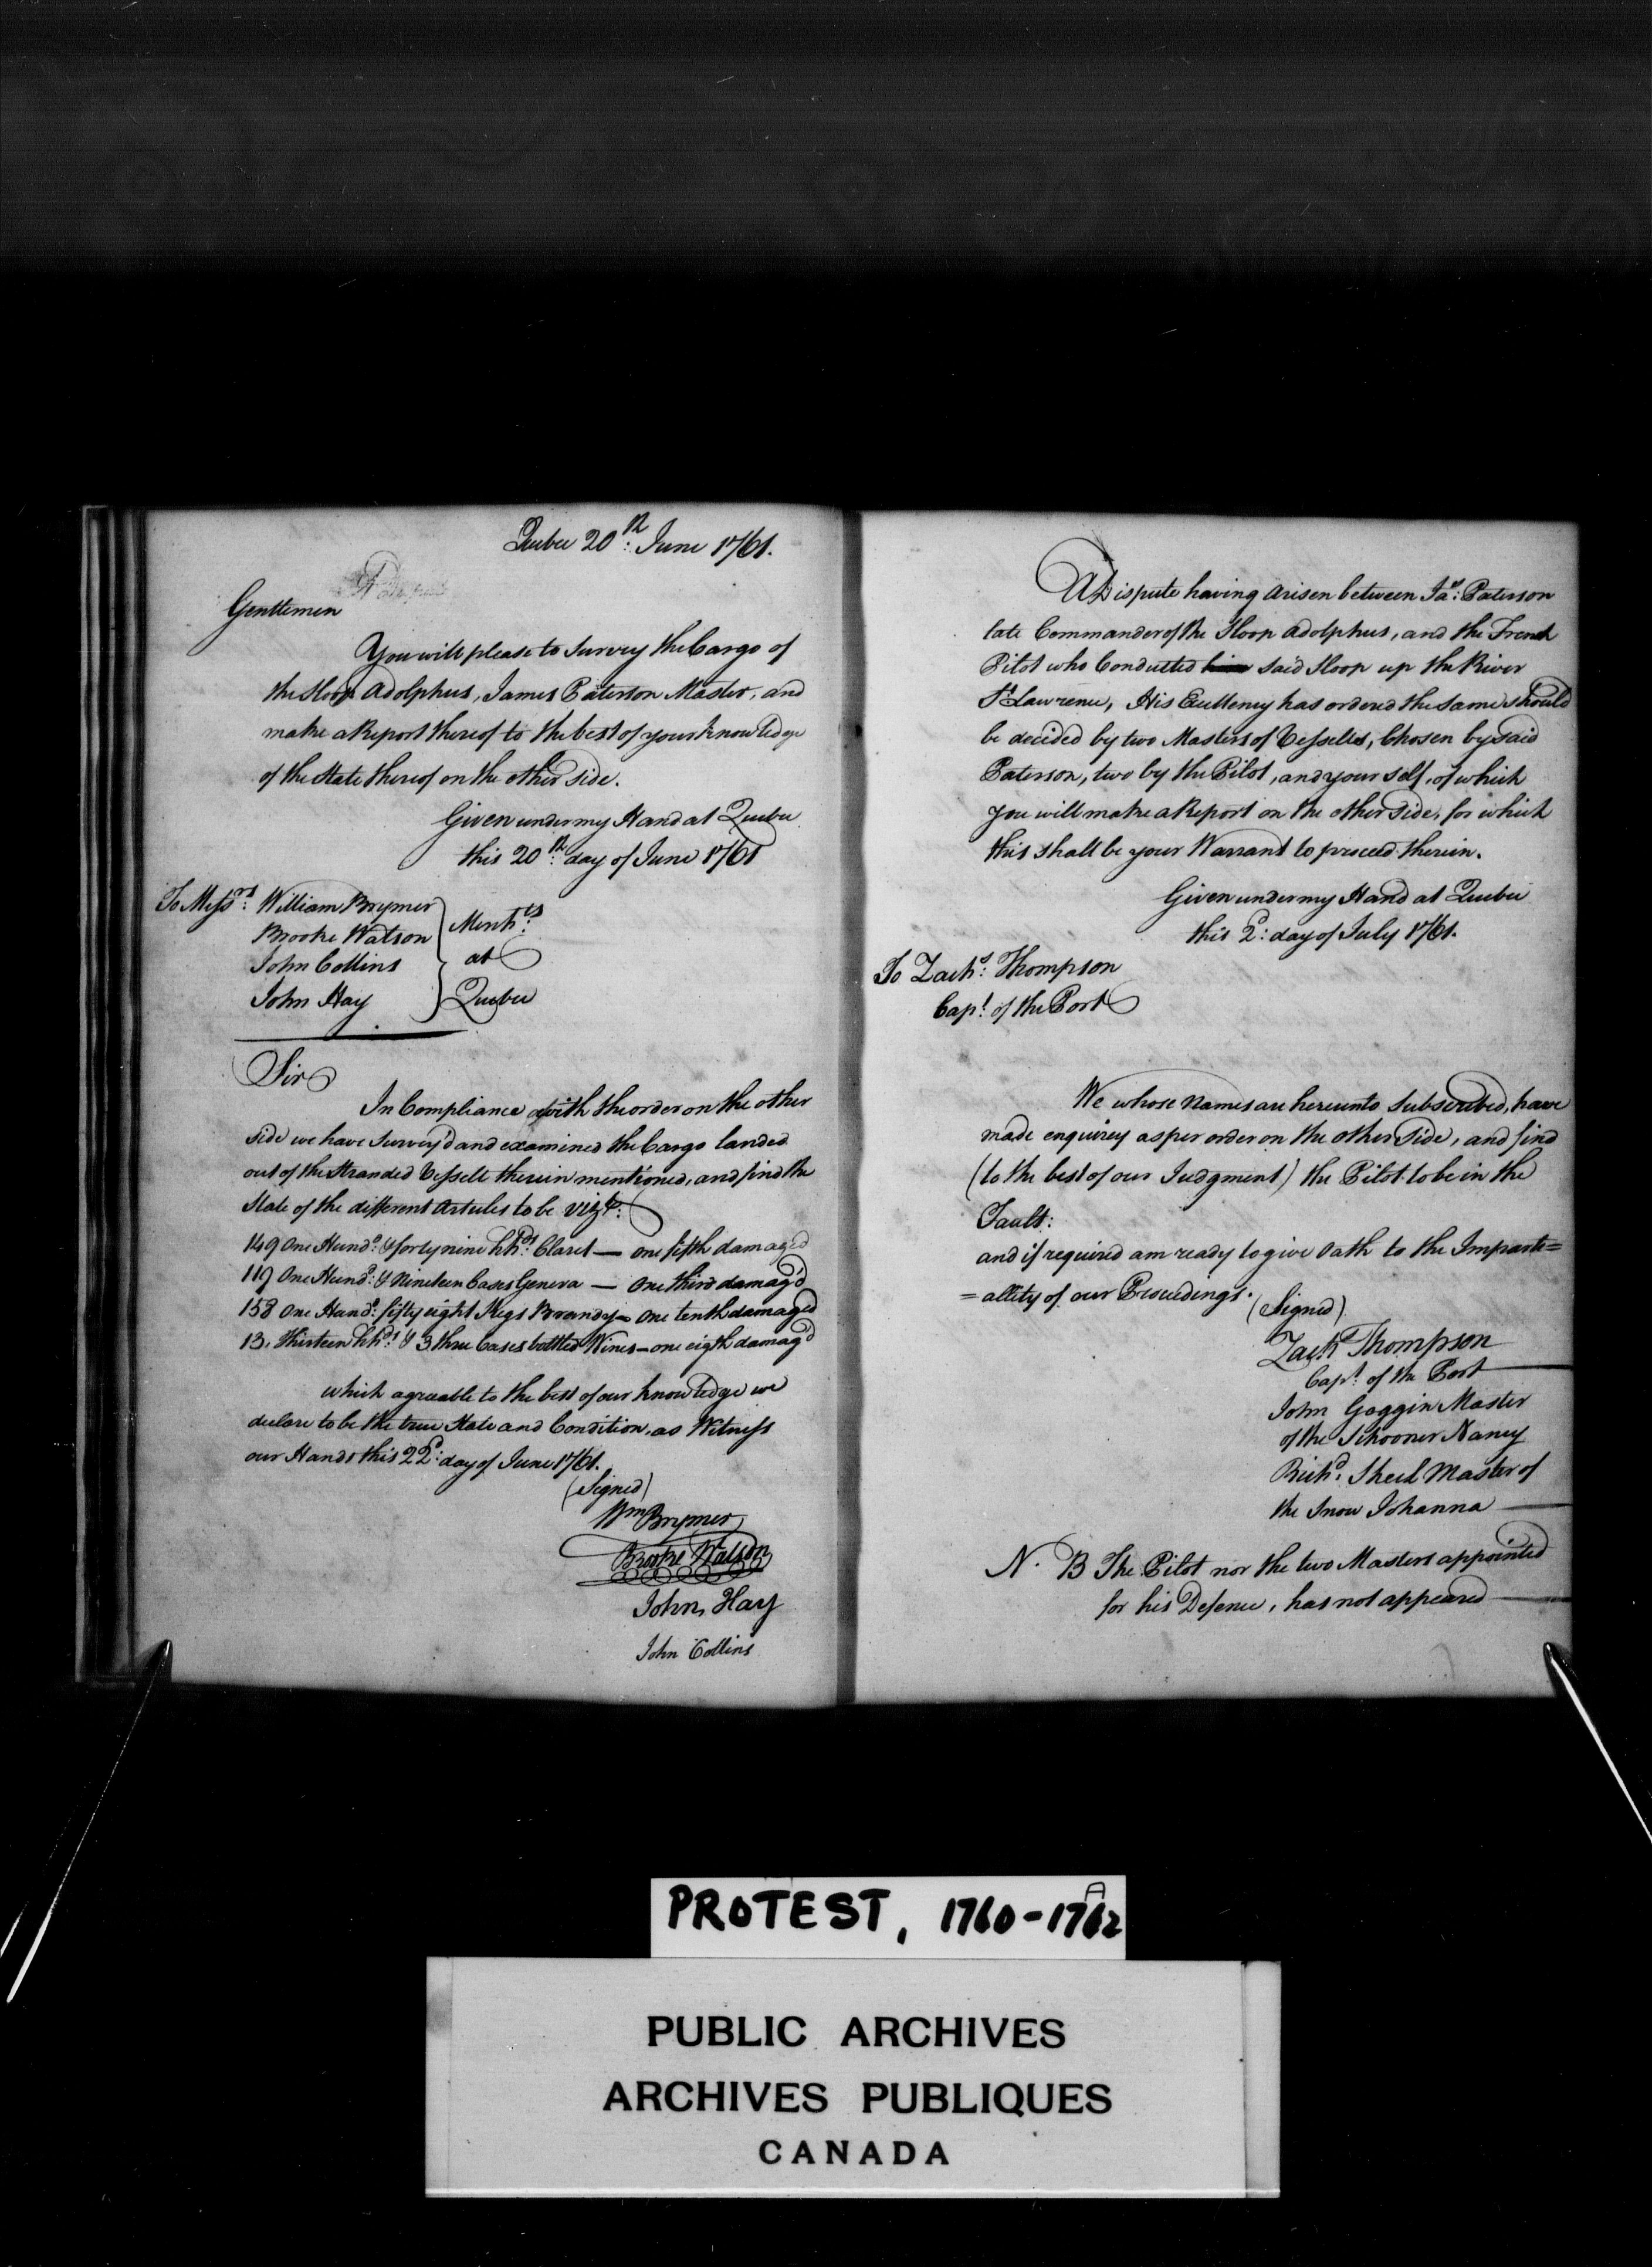 Quebec 20th: June 1761.
Gentlemen
You will please to Survey the Cargo of
the Sloop Adolphus, James Paterson Master, and
make a Report thereof to the best of your knowledge
of the State thereof on the other side.
Given under my Hand at Quebec
this 20th: day of June 1761
To Messrs: William Brymer
Brooke Watson
John Collins
John Hay
Mercht:
at
Quebec
Sir
In Compliance with the order on the other
side we have Survey'd and examined the Cargo landed
out of the Stranded Vessell therein mentioned, and find the
State of the different Articles to be Vizt:
149 One Hund: & forty nine hhds: Claret — one fifth damaged
119 One Hund: & Nineteen Cases Geneva — One third damag'd
158 One Hund: fifty eight Kegs Brandy — One tenth damaged
13. Thirteen hhds: & 3 three Cases bottled Wines — one eigth damag'd
which agreeable to the best of our knowledge we
declare to be the true State and Condition, as Witness
our Hands this 22d: day of June 1761.
(Signed)
Wm Brymer
Brooke Watson
John Hay
John Collins
A Dispute having arisen between Jas: Paterson
late Commander of the Sloop Adolphus, and the French
Pilot who Conducted him said Sloop up the River
St Lawrence, His Excellency has ordered the same should
be decided by two Masters of Vessells, Chosen by said
Paterson, two by the Pilot, and your self, of which
you will make a Report on the other side, for which
this shall be your Warrant to proceed therein.
Given under my Hand at Quebec
this 2d: day of July 1761.
To Zachs: Thompson
Capt: of the Port
We whose Names are hereunto Subscribed, have
made enquirey as per order on the other Side, and find
(to the best of our Judgment) the Pilot to be in the
Fault:
and if required am ready to give Oath to the Imparti=
=allity of our Proceedings.
(Signed)
Zachs Thompson
Capt: of the Port
John Goggin Master
of the Schooner Nancy
Richd: Sheil Master of
the Snow Johanna
N. B The Pilot nor the two Masters appointed
for his Defence, has not appeared
PROTEST, 1760-1762
PUBLIC ARCHIVES
ARCHIVES PUBLIQUES
CANADA